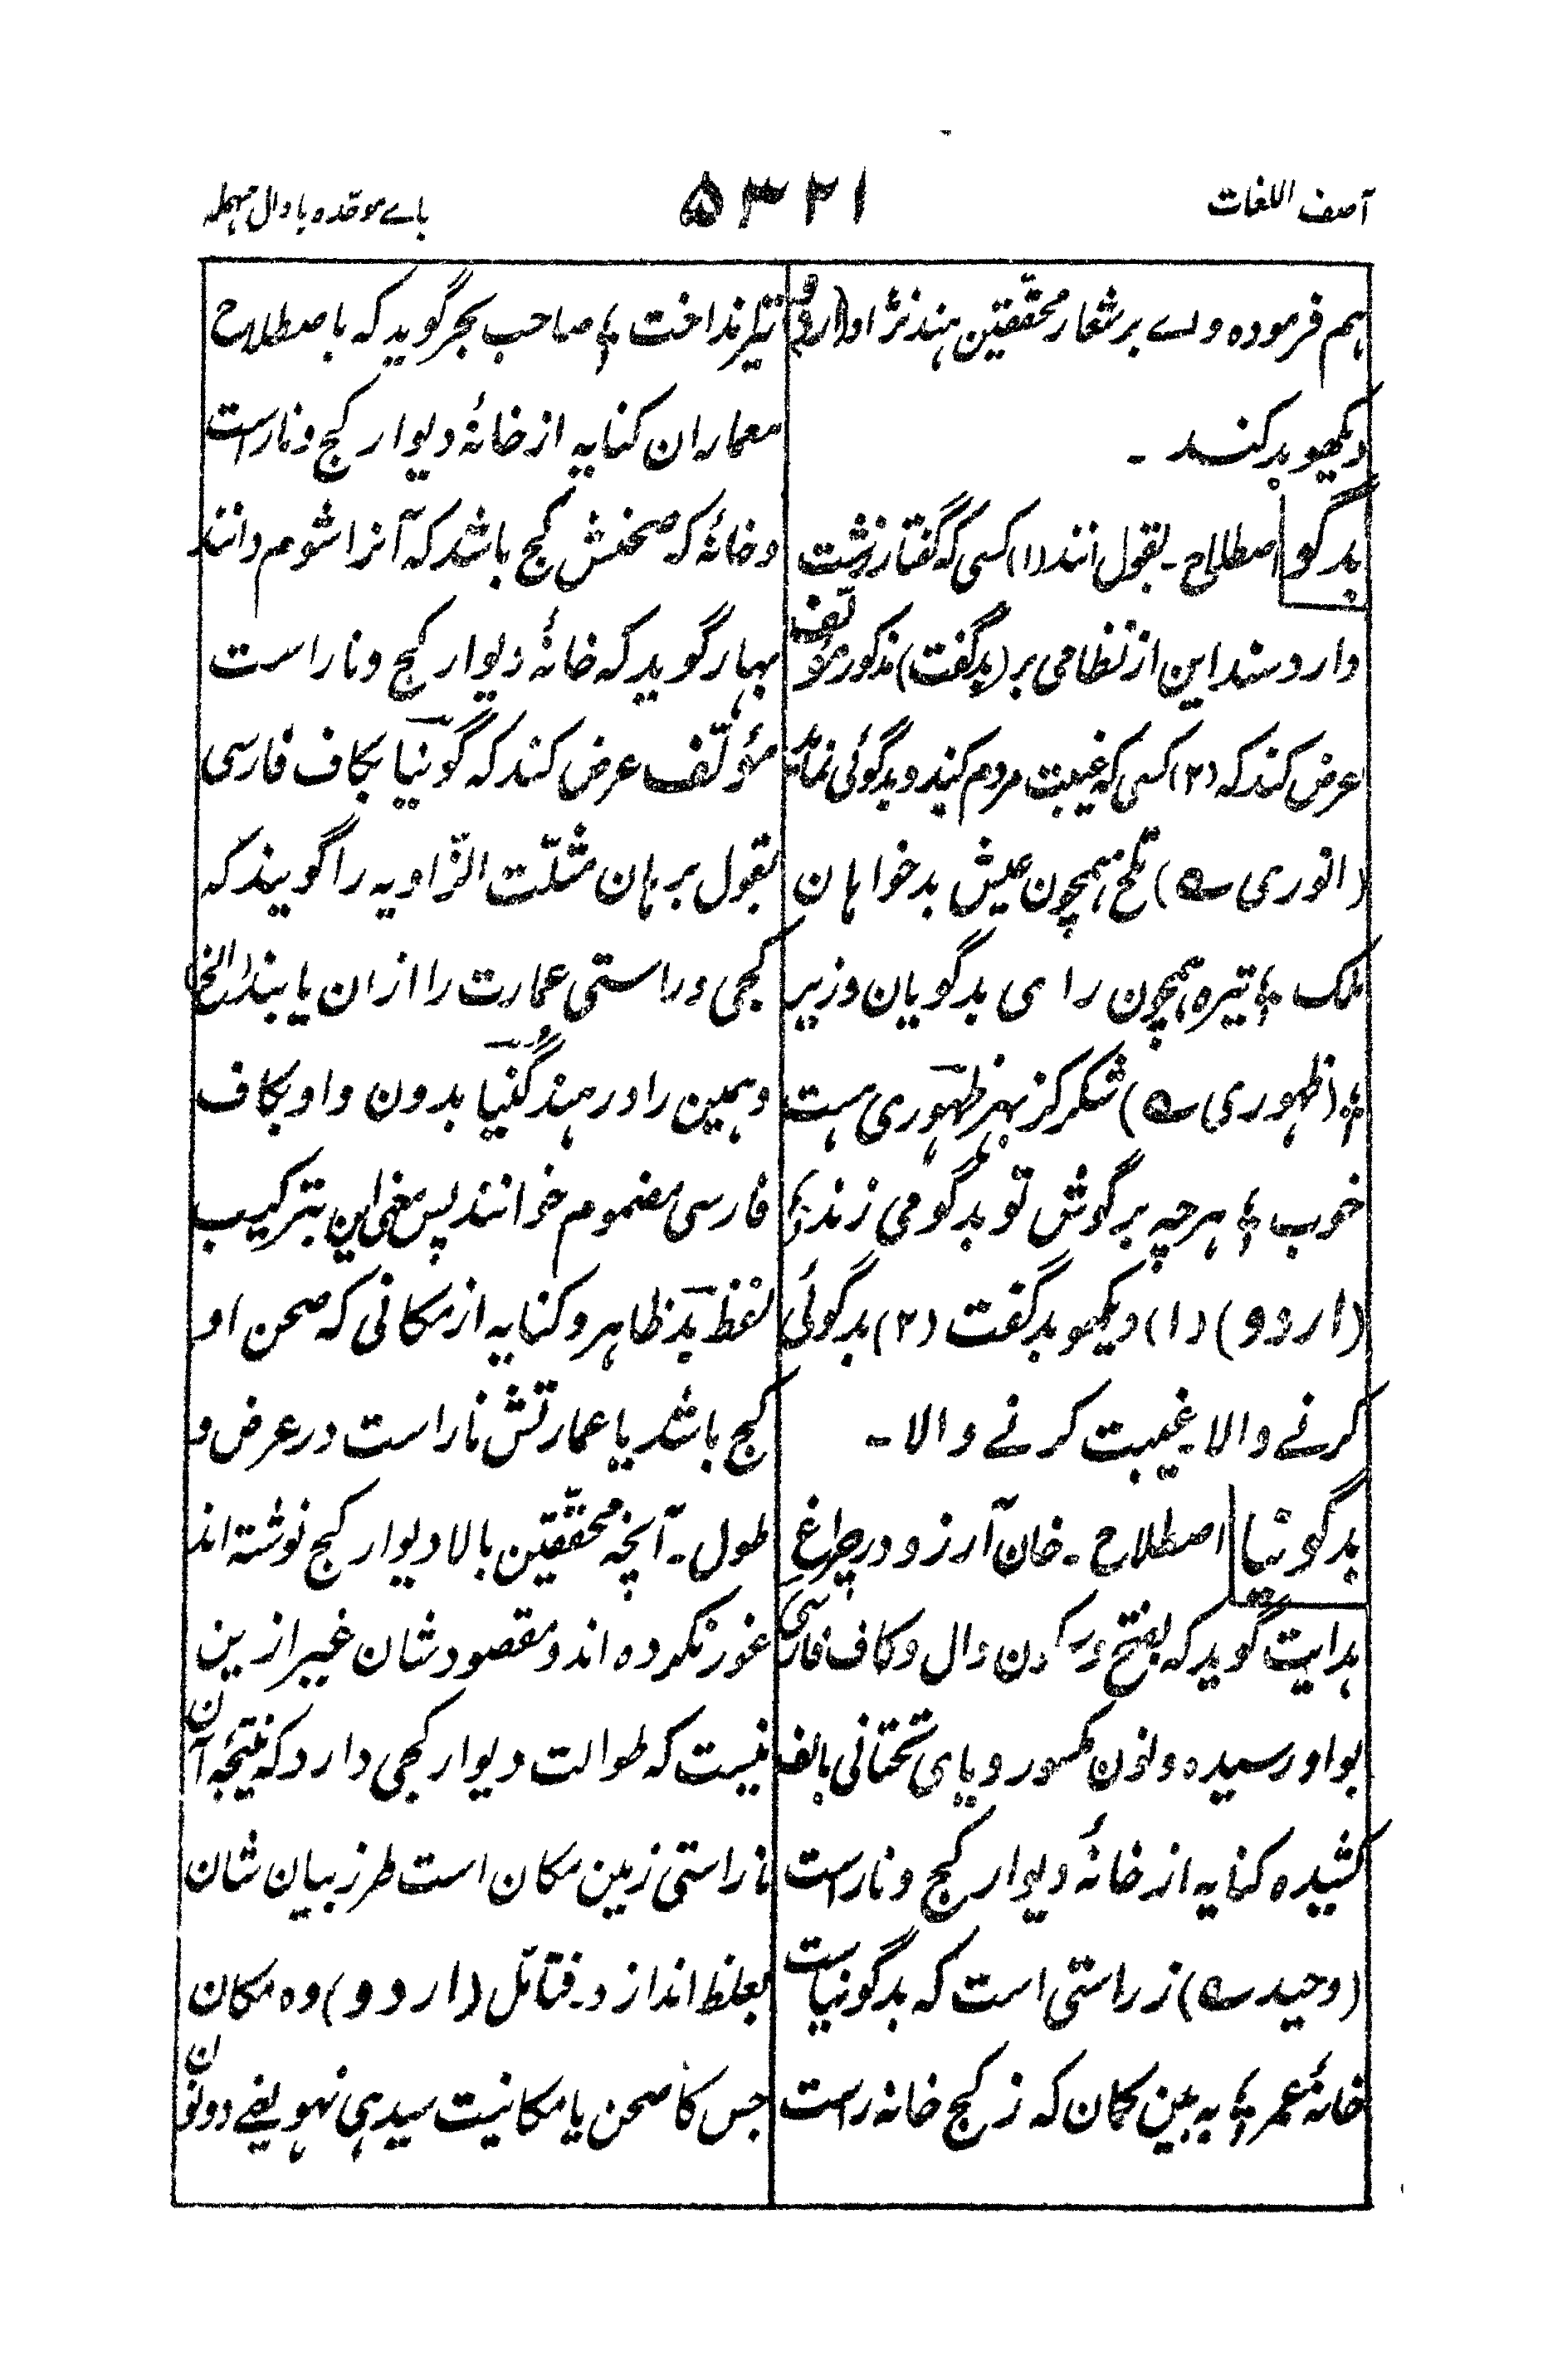 آصف اللغات
۵۳۲۱
باے موحّدہ با دال مہملہ
ہم فرمودہ ولے بر شعار محقّقین ہند نژاد (اردو)
دیکھو بدکند ۔
بدگو اصطلاح ۔ بقول انند (۱) کسی کہ گفتار زشت
دارد سند این از نظامی بر (بدگفت) مذکور مؤلّف
عرض کند کہ (۲) کسی کہ غیبت مردم کند و بدگوئی نماید
(انوری ؎) تلخ ہمچون عیش بدخواہان
ملک ؛ تیرہ ہمچون رای بدگویان وزیر
؛ (ظہوری ؎) شکر کز بہر ظہوری ہست
خوب ؛ ہرچہ بر گوش تو بدگو می زند ؛
(اردو) (۱) دیکھو بدگفت (۲) بدگوئی
کرنے والا۔ غیبت کرنے والا ۔
بدگونیا اصطلاح ۔ خان آرزو در چراغ
ہدایت گوید کہ بفتح و دال و کاف فارسی
بواو رسیدہ و نون مکسور و یای تحتانی بالف
کشیدہ کنایہ از خانۂ دیوار کج و ناراست
(وحید ؎) ز راستی است کہ بدگونیاست
خانۂ عمر ؛ بہ بین کمان کہ ز کج خانہ راست
تیر نداخت ؛ صاحب بحر گوید کہ باصطلاح
معماران کنایہ از خانۂ دیوار کج و ناراست
و خانۂ کہ صحنش کج باشد کہ آنرا شوم دانند
بہار گوید کہ خانۂ دیوار کج و ناراست
مؤلّف عرض کند کہ گونیا بکاف فارسی
بقول برہان مثلّث الزّاویہ را گویند کہ
کجی و راستی عمارت را ازان یابند (الخ)
و ہمین را در ہند گُنیا بدون واو بکاف
فارسی مضموم خوانند پس معنی این بترکیب
لفظ بد ظاہر و کنایہ از مکانی کہ صحن او
کج باشد یا عمارتش ناراست در عرض و
طول ۔ آنچہ محقّقین بالا دیوار کج نوشتہ اند
غور نکردہ اند و مقصود شان غیر ازین
نیست کہ طوالت دیوار کجی دارد کہ نتیجۂ آن
ناراستی زمین مکان است طرز بیان شان
بغلط اندازد۔ فتامّل (اردو) وہ مکان
جس کا صحن یا مکانیت سیدہی نہو یعنے دونون